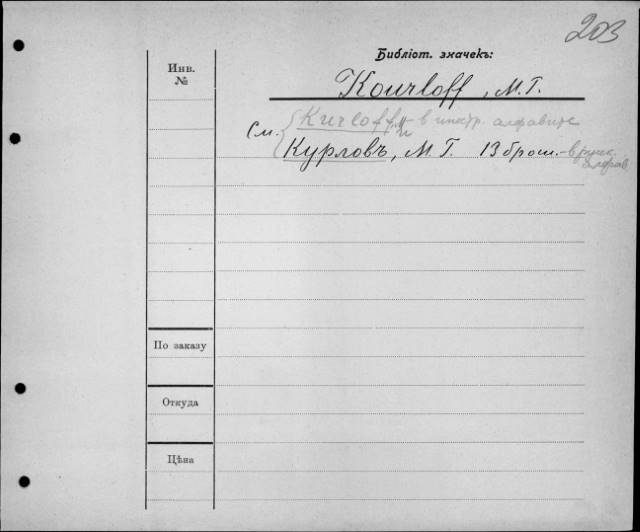 203
Библіот. значекъ:
Инв.
№
Kourloff, М.Г.
См. Kurloff, M – в иностр. алфавите
Курловъ, М.Г. 13 брош. – в русск.
алфав.
По заказу
Откуда
Цѣна